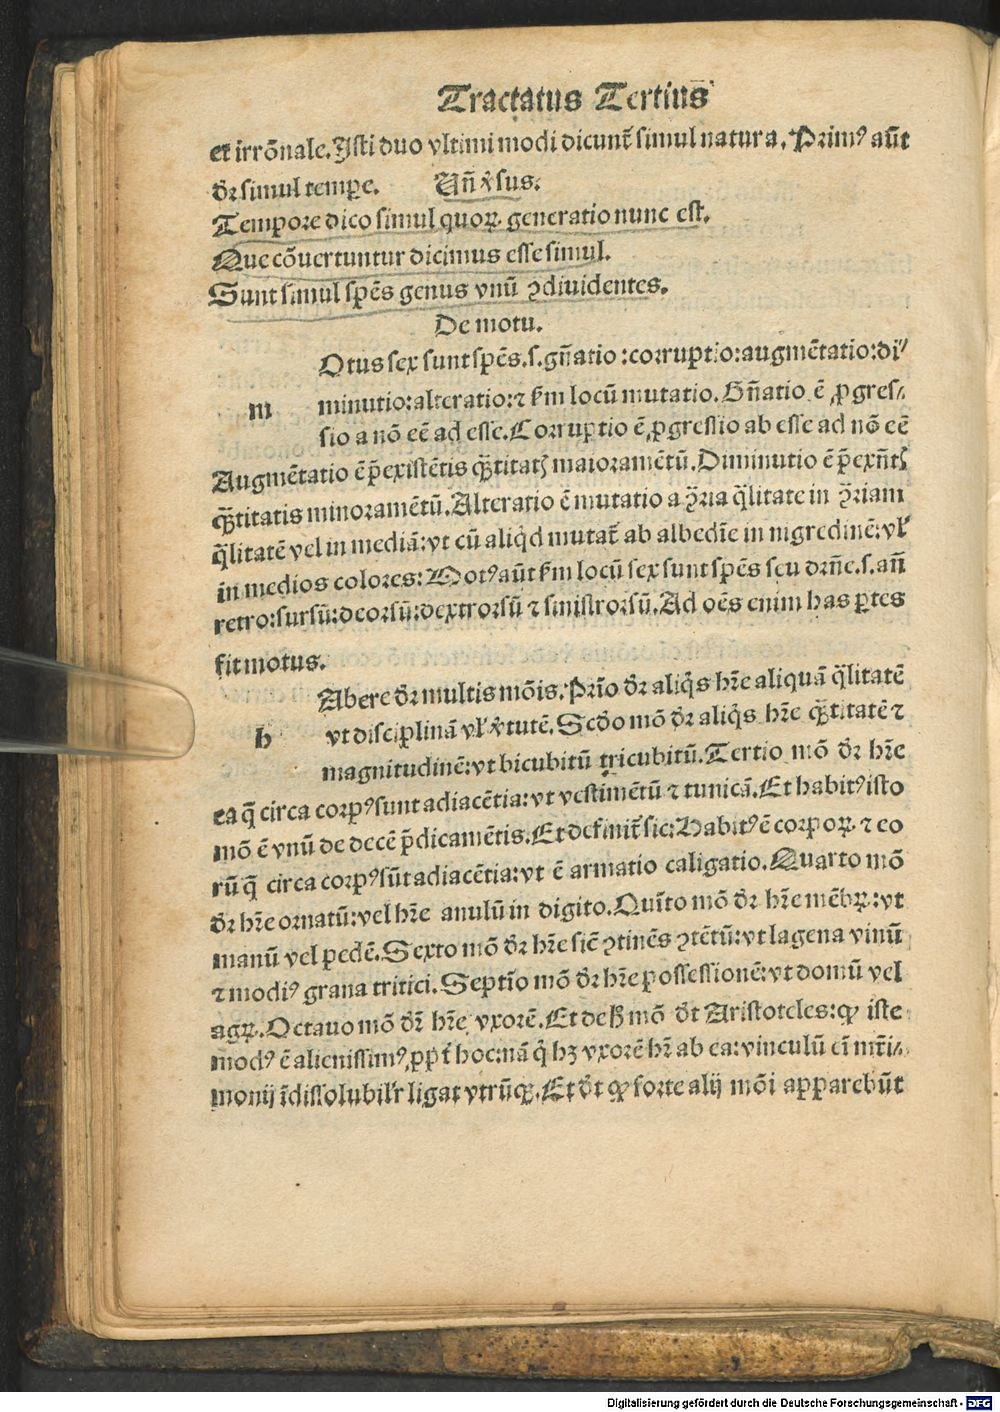 Tractatus Tertius
et irrōnale. Isti duo vltimi modi dicunt̄ simul natura. Primꝰ aūt
d̄r simul tempe. Un̄ ꝟsus.
Tempore dico simul quoꝝ generatio nunc est.
Que cōuertuntur dicimus esse simul.
Sunt simul spēs genus vnū ꝯdiuidentes.
De motu.
Otus sex sunt spēs. s. gn̄atio: corruptio: augmētatio: di⸗
m minutio: alteratio: ⁊ ẜm locū mutatio. Gn̄atio ē ꝓgres⸗
sio a nō eē ad esse. Corruptio ē ꝓgressio ab esse ad nō eē
Augmētatio ē p̄existētis q̄ꝫtitatꝭ maioramētū. Diminutio ē p̄exn̄tꝭ
q̄ꝫtitatis minoramētū. Alteratio ē mutatio a ꝯ̄ria q̄litate in ꝯ̄riam
q̄litatē vel in mediā: vt cū aliq̇d mutat̄ ab albedīe in nigredinē: vł
in medios colores: Motꝰ aūt ẜm locū sex sunt spēs seu dr̄n̄e. s. an̄
retro: sursū: deorsū: dextrorsū ⁊ sinistrorsū. Ad oēs enim has ꝑtes
fit motus.
Abere d̄r multis mōis. Prīo d̄r aliq̇s hr̄e aliquā q̄litatē
h vt disciplinā vł ꝟtutē. Scd̄o mō d̄r aliq̇s hr̄e q̄ꝫtitatē ⁊
magnitudinē: vt bicubitū tricubitū. Tertio mō d̄r hr̄e
ea q̄ circa corpꝰ sunt adiacētia: vt vestimētū ⁊ tunicā. Et habitꝰ isto
mō ē vnū de decē p̄dicamētis. Et definit̄ sic: Habitꝰ ē corpoꝝ ⁊ eo
rū q̄ circa corpꝰ sūt adiacētia: vt ē armatio caligatio. Quarto mō
d̄r hr̄e ornatū: vel hr̄e anulū in digito. Quīto mō d̄r hr̄e mēbꝝ: vt
manū vel pedē. Sexto mō d̄r hr̄e sic̄ ꝯtinēs ꝯtētū: vt lagena vinū
⁊ modiꝰ grana tritici. Septīo mō d̄r hr̄e possessionē: vt domū vel
agꝝ. Octauo mō d̄r hr̄e vxorē. Et de ħ mō d̄t Aristoteles: ꝙ iste
modꝰ ē alienissimꝰ, ꝓpt̄ hoc: nā q̇ hꝫ vxorē hr̄ ab ea: vinculū em̄ mr̄i⸗
monij īdissolubilr̄ ligat vtrūqꝫ. Et d̄t ꝙ forte alij mōi apparebūt
Digitalisierung gefördert durch die Deutsche Forschungsgemeinschaft - DFG